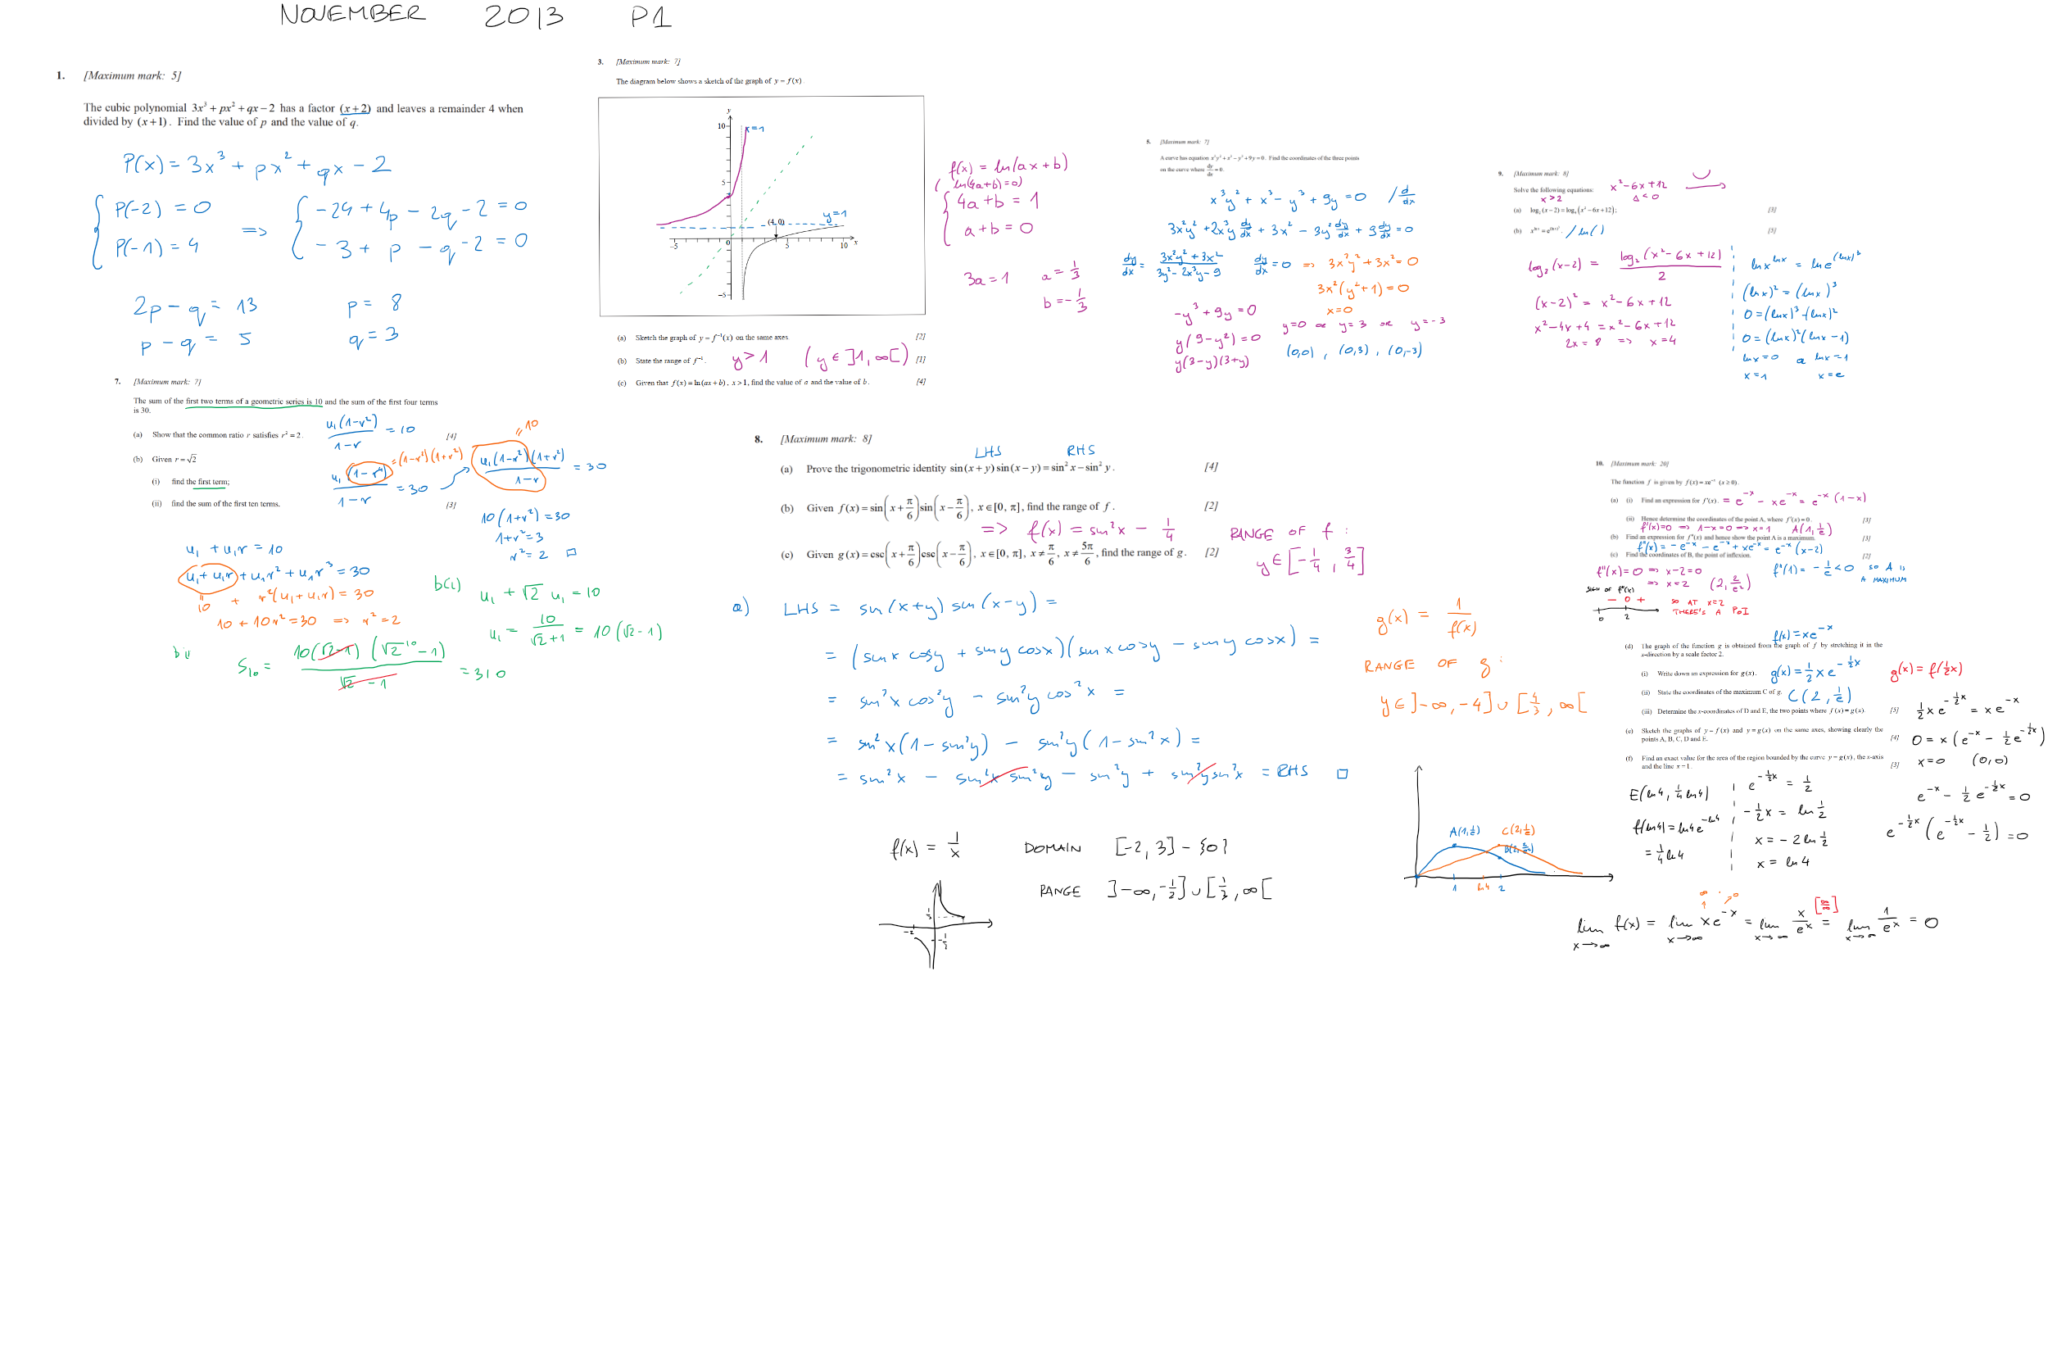 NOVEMBER 2013 P1
1. [Maximum mark: 5]
The cubic polynomial 3x³ + px² + qx − 2 has a factor (x + 2) and leaves a remainder 4 when
divided by (x + 1). Find the value of p and the value of q.
P(x) = 3x³ + px² + qx − 2
P(−2) = 0
P(−1) = 4
=>
−24 + 4p − 2q − 2 = 0
−3 + p − q − 2 = 0
2p − q = 13
p − q = 5
p = 8
q = 3
3. [Maximum mark: 7]
The diagram below shows a sketch of the graph of y = f(x).
y
10
x=1
5
(4, 0)
y=1
−5
0
5
10
x
−5
(a) Sketch the graph of y = f⁻¹(x) on the same axes. [2]
(b) State the range of f⁻¹. y > 1 (y ∈ ]1, ∞[) [1]
(c) Given that f(x) = ln(ax + b), x > 1, find the value of a and the value of b. [4]
f(x) = ln(ax + b)
ln(4a+b) = 0
4a + b = 1
a + b = 0
3a = 1 a = 1/3
b = −1/3
5. [Maximum mark: 7]
A curve has equation x³y² + x³ − y³ + 9y = 0. Find the coordinates of the three points
on the curve where dy/dx = 0.
x³y² + x³ − y³ + 9y = 0 / d/dx
3x²y² + 2x³y dy/dx + 3x² − 3y² dy/dx + 9 dy/dx = 0
dy/dx = (3x²y² + 3x²)/(3y² − 2x³y − 9) dy/dx = 0 => 3x²y² + 3x² = 0
3x²(y² + 1) = 0
x = 0
−y³ + 9y = 0
y(9 − y²) = 0
y(3−y)(3+y)
y=0 or y=3 or y=−3
(0,0), (0,3), (0,−3)
9. [Maximum mark: 8]
Solve the following equations: x² − 6x + 12
x > 2 Δ < 0
(a) log₂(x − 2) = log₄(x² − 6x + 12); [3]
(b) x^(ln x) = e^((ln x)³). / ln( ) [5]
log₂(x−2) = log₂(x² − 6x + 12)/2
(x−2)² = x² − 6x + 12
x² − 4x + 4 = x² − 6x + 12
2x = 8 => x = 4
ln x^(ln x) = ln e^((ln x)³)
(ln x)² = (ln x)³
0 = (ln x)³ − (ln x)²
0 = (ln x)²(ln x − 1)
ln x = 0 or ln x = 1
x = 1 x = e
7. [Maximum mark: 7]
The sum of the first two terms of a geometric series is 10 and the sum of the first four terms
is 30.
(a) Show that the common ratio r satisfies r² = 2. [4]
(b) Given r = √2
(i) find the first term;
(ii) find the sum of the first ten terms. [3]
u₁(1−r²)/(1−r) = 10
u₁(1−r⁴)/(1−r) = 30
=(1−r²)(1+r²)
= 10
u₁(1−r²)(1+r²)/(1−r) = 30
10(1+r²) = 30
1+r² = 3
r² = 2 □
u₁ + u₁r = 10
u₁ + u₁r + u₁r² + u₁r³ = 30
10 + r²(u₁ + u₁r) = 30
10 + 10r² = 30 => r² = 2
b(i) u₁ + √2 u₁ = 10
u₁ = 10/(√2+1) = 10(√2−1)
bii S₁₀ = 10(√2−1)(√2¹⁰−1)/(√2−1) = 310
8. [Maximum mark: 8]
LHS RHS
(a) Prove the trigonometric identity sin(x + y)sin(x − y) = sin²x − sin²y. [4]
(b) Given f(x) = sin(x + π/6)sin(x − π/6), x ∈ [0, π], find the range of f. [2]
=> f(x) = sin²x − 1/4
(c) Given g(x) = csc(x + π/6)csc(x − π/6), x ∈ [0, π], x ≠ π/6, x ≠ 5π/6, find the range of g. [2]
RANGE OF f:
y ∈ [−1/4, 3/4]
a) LHS = sin(x+y) sin(x−y) =
= (sin x cos y + sin y cos x)(sin x cos y − sin y cos x) =
= sin²x cos²y − sin²y cos²x =
= sin²x(1 − sin²y) − sin²y(1 − sin²x) =
= sin²x − sin²x sin²y − sin²y + sin²y sin²x = RHS □
g(x) = 1/f(x)
RANGE OF g:
y ∈ ]−∞, −4] ∪ [4/3, ∞[
f(x) = 1/x DOMAIN [−2, 3] − {0}
RANGE ]−∞, −1/2] ∪ [1/3, ∞[
10. [Maximum mark: 20]
The function f is given by f(x) = xe⁻ˣ (x ≥ 0).
(a) (i) Find an expression for f′(x). = e⁻ˣ − xe⁻ˣ = e⁻ˣ(1−x)
(ii) Hence determine the coordinates of the point A, where f′(x) = 0. [3]
f′(x)=0 => 1−x=0 => x=1 A(1, 1/e)
(b) Find an expression for f″(x) and hence show the point A is a maximum. [3]
f″(x) = −e⁻ˣ − e⁻ˣ + xe⁻ˣ = e⁻ˣ(x−2)
(c) Find the coordinates of B, the point of inflexion. [2]
f″(x)=0 => x−2=0
=> x=2 (2, 2/e²)
f″(1) = −1/e < 0 so A IS
A MAXIMUM
SIGN OF f″(x)
− 0 +
0 2
SO AT x=2
THERE'S A PoI
f(x) = xe⁻ˣ
(d) The graph of the function g is obtained from the graph of f by stretching it in the
x-direction by a scale factor 2.
(i) Write down an expression for g(x). g(x) = 1/2 x e^(−1/2 x) g(x) = f(1/2 x)
(ii) State the coordinates of the maximum C of g. C(2, 1/e)
(iii) Determine the x-coordinates of D and E, the two points where f(x) = g(x). [5]
(e) Sketch the graphs of y = f(x) and y = g(x) on the same axes, showing clearly the
points A, B, C, D and E. [4]
(f) Find an exact value for the area of the region bounded by the curve y = g(x), the x-axis
and the line x = 1. [3]
1/2 x e^(−1/2 x) = x e⁻ˣ
0 = x(e⁻ˣ − 1/2 e^(−1/2 x))
x=0 (0,0)
e⁻ˣ − 1/2 e^(−1/2 x) = 0
e^(−1/2 x)(e^(−1/2 x) − 1/2) = 0
e^(−1/2 x) = 1/2
−1/2 x = ln 1/2
x = −2 ln 1/2
x = ln 4
E(ln4, 1/4 ln4)
f(ln4) = ln4 e^(−ln4)
= 1/4 ln4
A(1, 1/e) C(2, 1/e)
B(2, 2/e²)
1 ln4 2
lim x→∞ f(x) = lim x→∞ xe⁻ˣ = lim x→∞ x/eˣ = [∞/∞] lim x→∞ 1/eˣ = 0